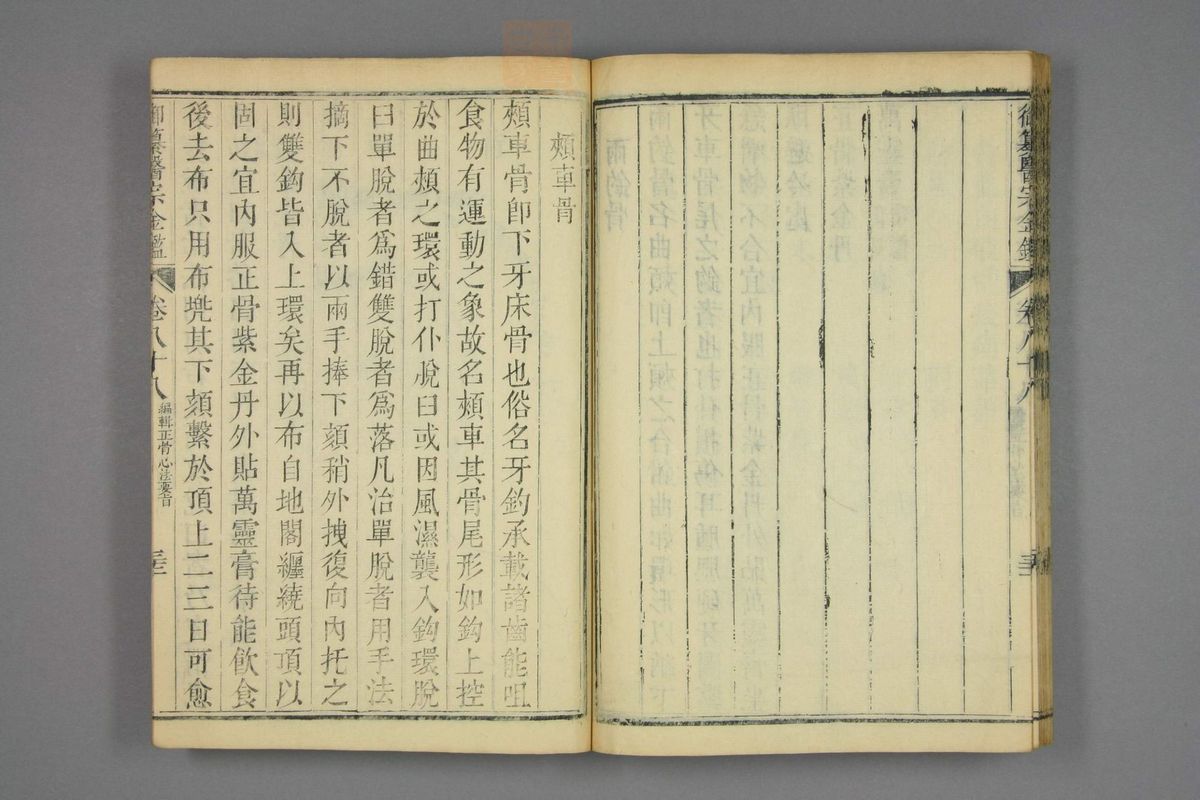 御纂醫宗金鑑 卷八十八
頰車骨
頰車骨卽下牙床骨也俗名牙鈎承載諸齒能咀
食物有運動之象故名頰車其骨尾形如鈎上控
於曲頰之環或打仆脫臼或因風濕襲入鈎環脫
臼單脫者爲錯雙脫者爲落凡治單脫者用手法
摘下不脫者以兩手捧下頦稍外拽復向內托之
則雙鈎皆入上環矣再以布自地閣纏繞頭頂以
固之宜內服正骨紫金丹外貼萬靈膏待能飲食
後去布只用布兜其下頦繫於頂上二三日可愈
御纂醫宗金鑑 卷八十八 編輯正骨心法要旨